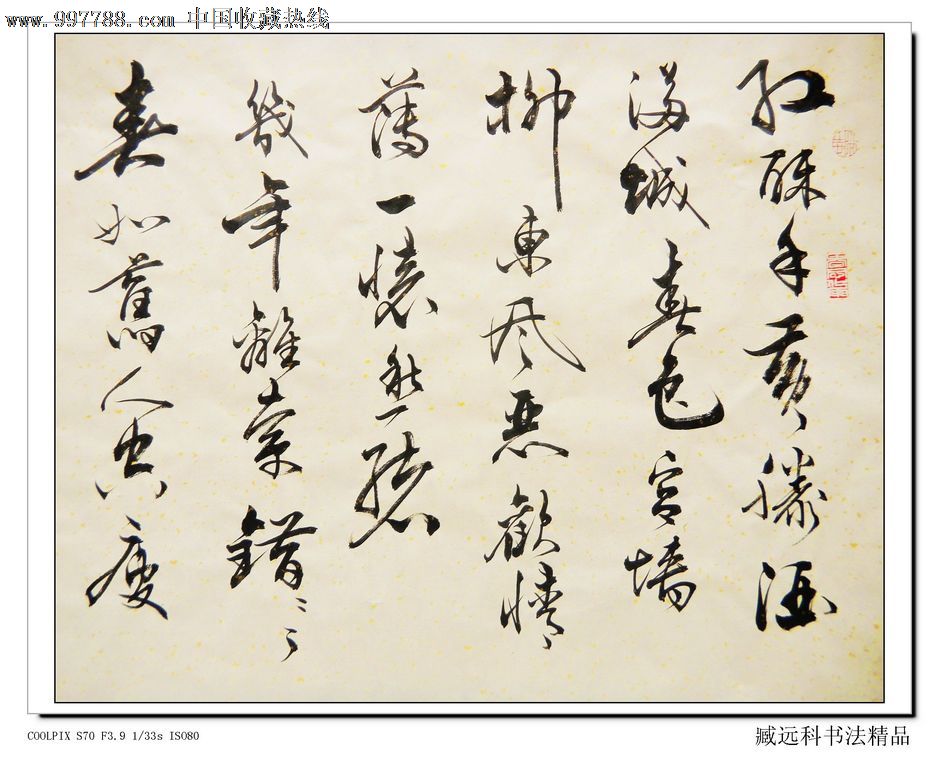 www.997788.com 中国收藏热线
红酥手黄縢酒
满城春色宫墙
柳東风恶歡情
薄一懷愁绪
幾年離索错々々
春如舊人空瘦
COOLPIX S70 F3.9 1/33s ISO80
臧远科书法精品